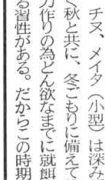 チヌ、メイタ(小型)は深み
く秋と共に、冬ごもりに備えて
力作りの為どん欲なまでに就餌
る習性がある。だからこの時期